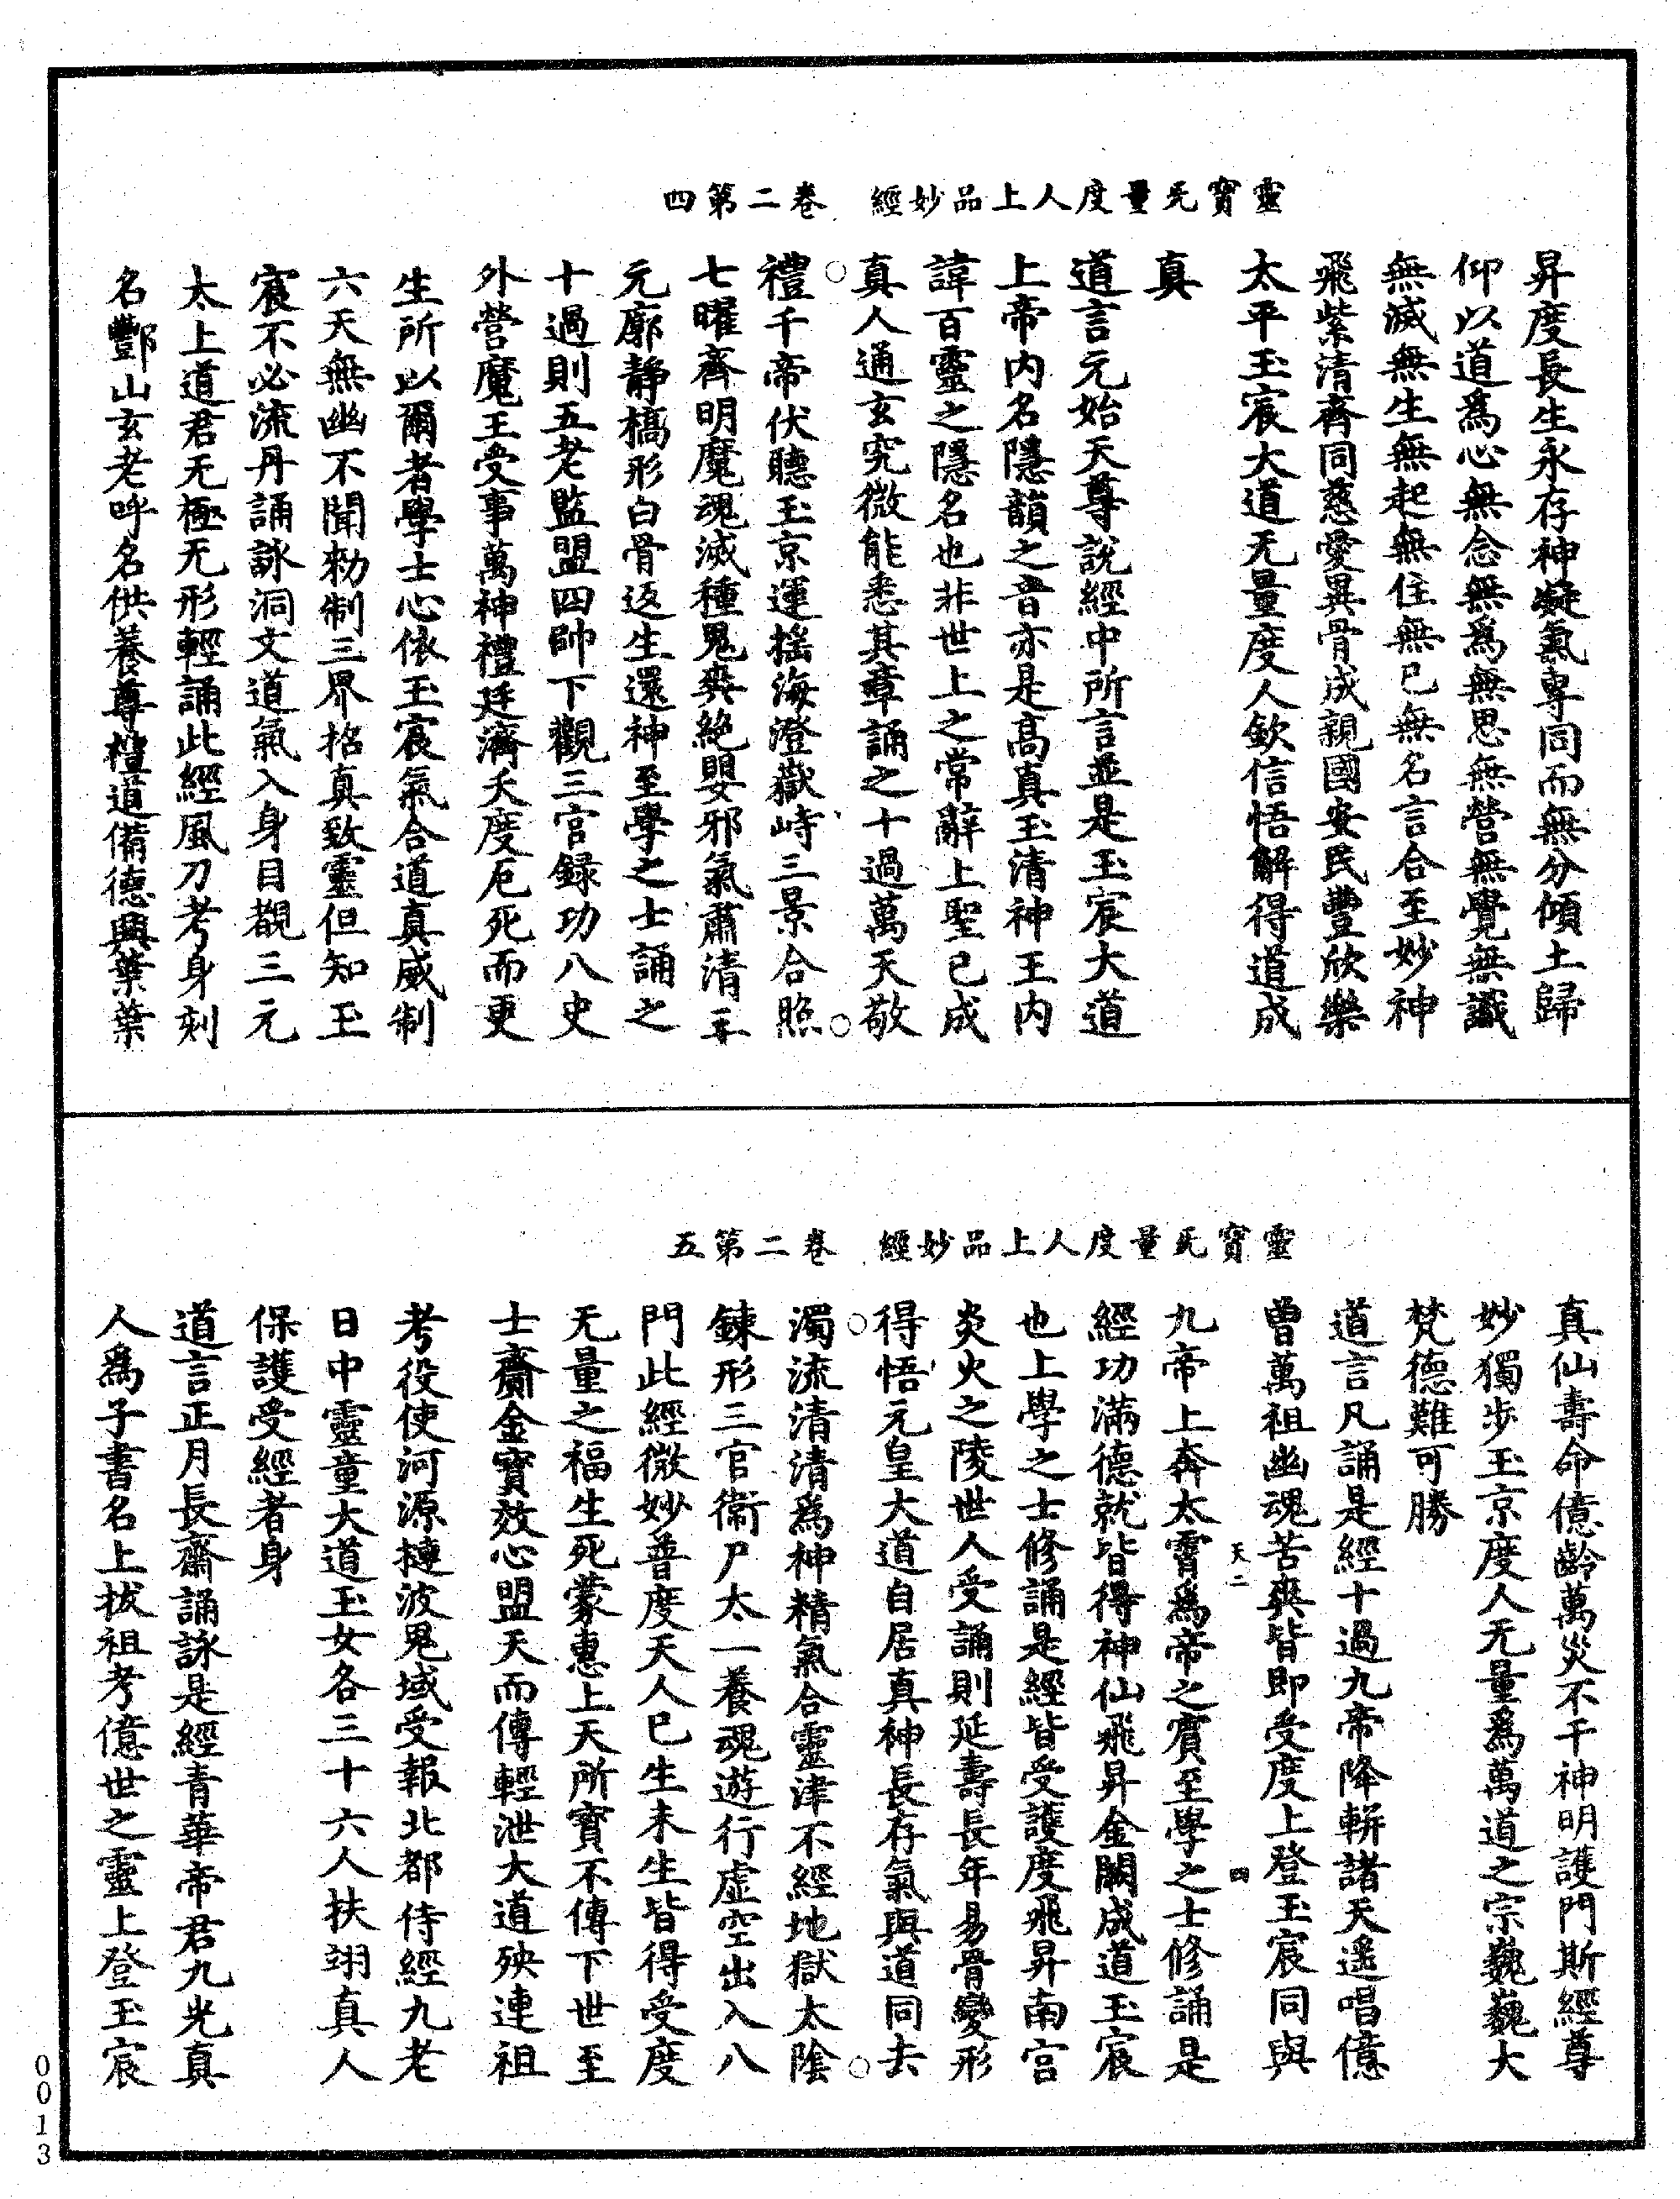 靈寶无量度人上品妙經　卷二第四
昇度長生永存神凝氣專同而無分傾土歸
仰以道爲心無念無爲無思無營無覺無識
無滅無生無起無住無已無名言合至妙神
飛紫清齊同慈愛異骨成親國安民豐欣樂
太平玉宸大道无量度人欽信悟解得道成
真
道言元始天尊說經中所言並是玉宸大道
上帝内名隱韻之音亦是高真玉清神王内
諱百靈之隱名也非世上之常辭上聖已成
真人通玄究微能悉其章誦之十過萬天敬
禮千帝伏聽玉京運摇海澄嶽峙三景合照
七曜齊明魔魂滅種鬼爽絶嬰邪氣肅清三
元廓靜槁形白骨返生還神至學之士誦之
十過則五老監盟四帥下觀三官録功八史
外營魔王受事萬神禮廷濟夭度厄死而更
生所以爾者學士心依玉宸氣合道真威制
六天無幽不聞勑制三界招真致靈但知玉
宸不必流丹誦詠洞文道氣入身目覩三元
太上道君无極无形輕誦此經風刀考身刻
名酆山玄老呼名供養尊禮道備德興葉葉
靈寶无量度人上品妙經　卷二第五
真仙壽命億齡萬災不干神明護門斯經尊
妙獨步玉京度人无量爲萬道之宗巍巍大
梵德難可勝
道言凡誦是經十過九帝降軿諸天遥唱億
曾萬祖幽魂苦爽皆即受度上登玉宸同與
天二　四
九帝上奔太霄爲帝之賓至學之士修誦是
經功滿德就皆得神仙飛昇金闕成道玉宸
也上學之士修誦是經皆受護度飛昇南宫
炎火之陵世人受誦則延壽長年易骨變形
得悟元皇大道自居真神長存氣與道同去
濁流清清爲神精氣合靈津不經地獄太陰
鍊形三官衞尸太一養魂遊行虚空出入八
門此經微妙普度天人已生未生皆得受度
无量之福生死蒙惠上天所寳不傳下世至
士齎金寳效心盟天而傳輕泄大道殃連祖
考役使河源摙波鬼域受報北都侍經九老
日中靈童大道玉女各三十六人扶翊真人
保護受經者身
道言正月長齋誦詠是經青華帝君九光真
人爲子書名上拔祖考億世之靈上登玉宸
0013